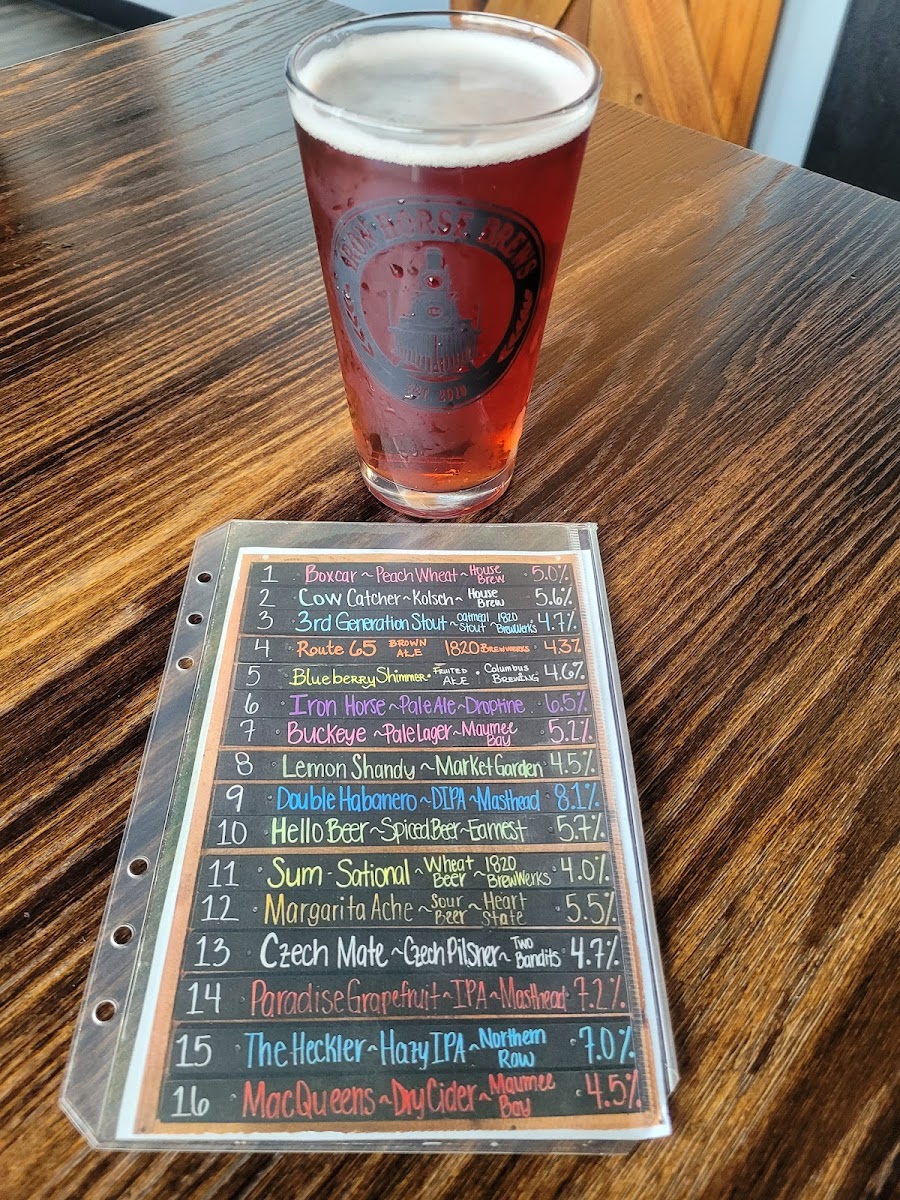 IRON HORSE BREWS
EST. 2019
1 · Boxcar ~ Peach Wheat ~ House Brew · 5.0%
2 · Cow Catcher ~ Kolsch ~ House Brew · 5.6%
3 · 3rd Generation Stout ~ Oatmeal Stout ~ 1820 BrewWerks · 4.7%
4 · Route 65 BROWN ALE 1820 BREWWERKS · 4.3%
5 · Blueberry Shimmer · FRUITED ALE · Columbus BREWING · 4.6%
6 · Iron Horse ~ Pale Ale ~ Dropline · 6.5%
7 · Buckeye ~ Pale Lager ~ Maumee Bay · 5.2%
8 · Lemon Shandy ~ Market Garden · 4.5%
9 · Double Habanero ~ DIPA ~ Masthead · 8.1%
10 · Hello Beer ~ Spiced Beer ~ Earnest · 5.7%
11 · Sum-Sational ~ Wheat Beer ~ 1820 BrewWerks · 4.0%
12 · Margarita Ache ~ Sour Beer ~ Heart State · 5.5%
13 · Czech Mate ~ Czech Pilsner ~ Two Bandits · 4.7%
14 · Paradise Grapefruit ~ IPA ~ Masthead · 7.2%
15 · The Heckler ~ Hazy IPA ~ Northern Row · 7.0%
16 · MacQueens ~ Dry Cider ~ Maumee Bay · 4.5%